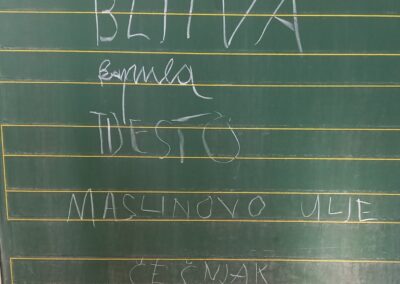 BLITVA
TIJESTO
MASLINOVO ULJE
ČEŠNJAK